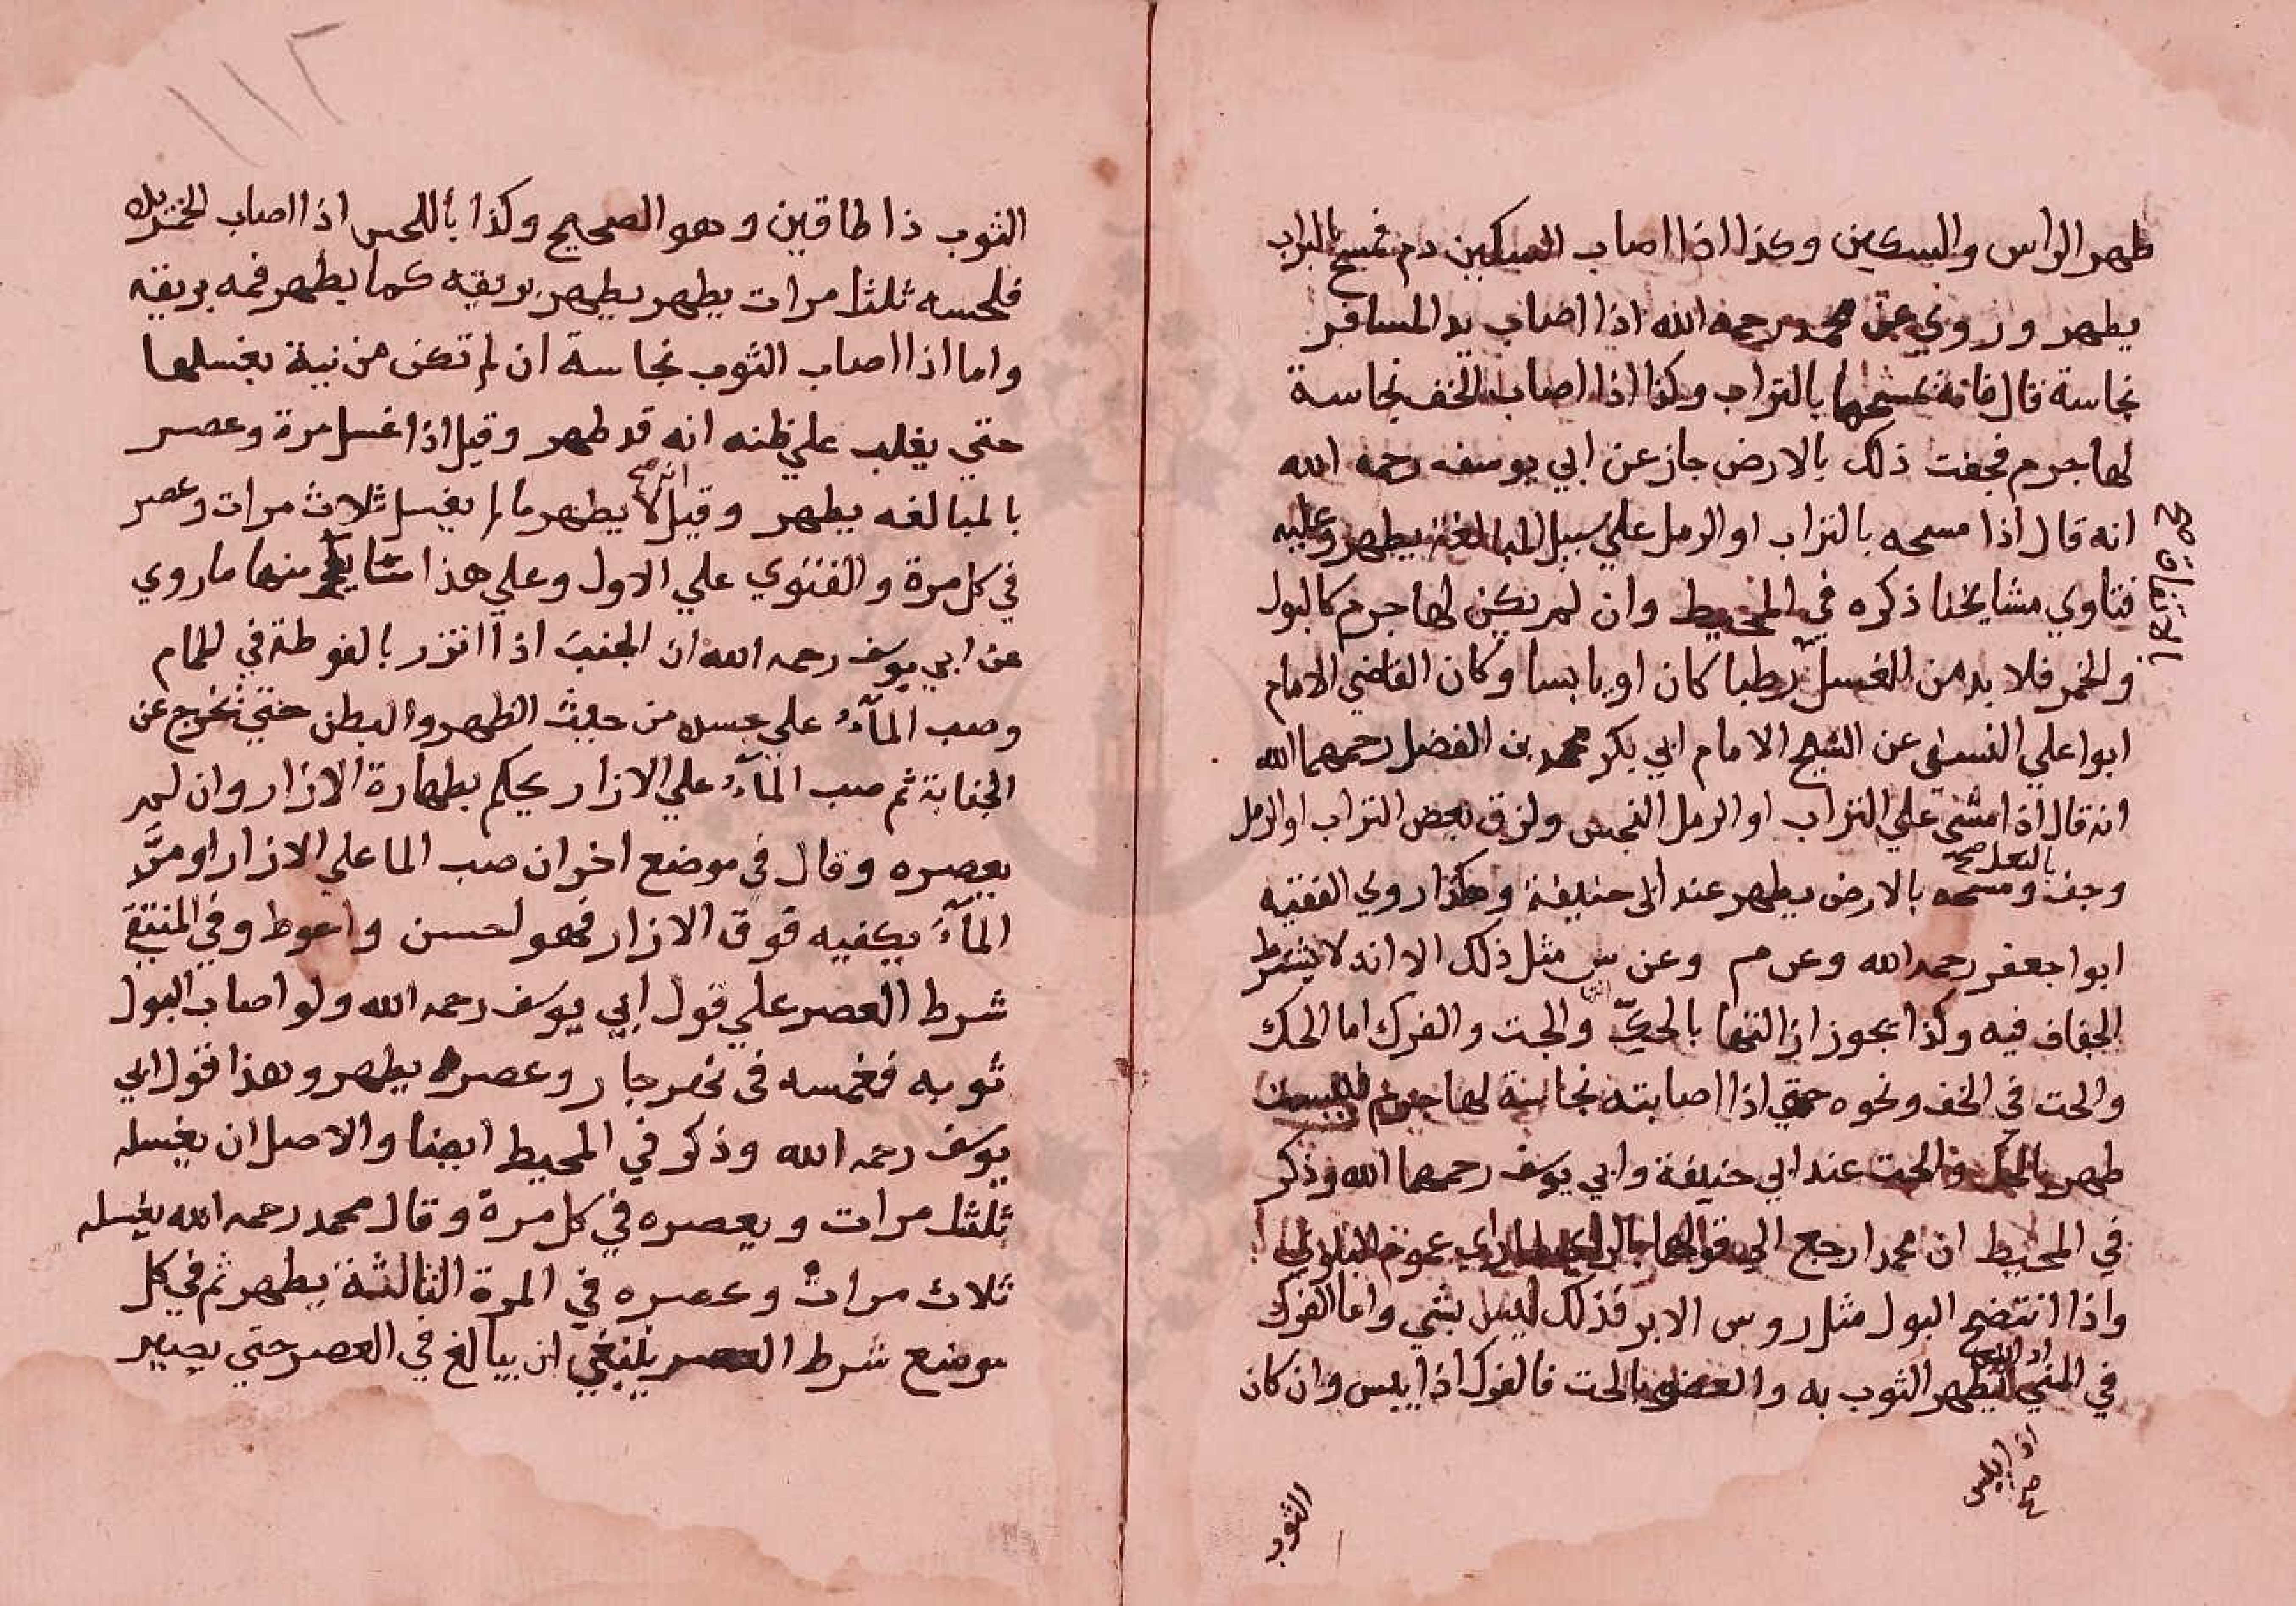 طهر الراس والسكين وكذا اذا اصاب السكين دم فمسح بالتراب
يطهر وروي عن محمد رحمه الله اذا اصاب يد المسافر
نجاسة قال فانه يمسحها بالتراب وكذا اذا اصاب الخف نجاسة
لها جرم فجفت ذلك بالارض جاز عن ابي يوسف رحمه الله
انه قال اذا مسحه بالتراب او الرمل علي سبيل المبالغة يطهر وعليه
فتاوي مشايخنا ذكره في المحيط وان لم يكن لها جرم كالبول
والخمر فلا بد من الغسل رطبا كان او يابسا وكان القاضي الامام
ابوا علي النسفي عن الشيخ الامام ابي بكر محمد بن الفضل رحمهما الله
انه قال اذا مشي علي التراب او الرمل النجس ولزق بعض التراب او الرمل
بالنعل صح
وجف ومسحه بالارض يطهر عند ابي حنيفة وهكذا روي الفقيه
ابوا جعفر رحمه الله وعن م وعن س مثل ذلك الا انه لا يشترط
الجفاف فيه وكذا يجوز ازالتها بالحكّ والحت والفرك اما الحك
والحت في الخف ونحوه حتي اذا اصابته نجاسة لها جرم
طهر بالحك والحت عند ابي حنيفة وابي يوسف رحمهما الله وذكر
في المحيط ان محمدا رجع الي قولهما بالري لما راي عموم البلوي
واذا انتضح البول مثل روس الابر فذلك ليس بشي واما الفرك
في المني يطهر الثوب به والعضو بالحت فالفرك اذا يبس وان كان
اذا يبس صح
الثوب
١١٢
الثوب ذا طاقين وهو الصحيح وكذا باللحس اذا اصاب الخمر يده
فلحسه ثلثا مرات يطهر يطهر بريقه كما يطهر فمه بريقه
واما اذا اصاب الثوب نجاسة ان لم تكن مرئية يغسلها
حتي يغلب علي ظنه انه قد طهر وقيل اذا غسل مرة وعصر
بالمبالغه يطهر وقيل لا يطهر ما لم يغسل ثلاث مرات وعصر
في كل مرة والفتوي علي الاول وعلي هذا منها ما روي
عن ابي يوسف رحمه الله ان الجنب اذا اتزر بالفوطة في الحمام
وصب المآء علي جسده من حيث الظهر والبطن حتي تخرج عن
الجنابة ثم صب المآء علي الازار يحكم بطهارة الازار وان لم
يعصره وقال في موضع اخر ان صب الما علي الازار او مرّ
المآء بكفيه فوق الازار فهو احسن واحوط وفي المنتقي
شرط العصر علي قول ابي يوسف رحمه الله ولو اصاب البول
ثوبه فغمسه في نهر جار وعصره يطهر وهذا قول ابي
يوسف رحمه الله وذكر في المحيط ايضا والاصل ان يغسله
ثلثا مرات ويعصره في كل مرة وقال محمد رحمه الله يغسله
ثلاث مرات وعصره في المرة الثالثة يطهر ثم في كل
موضع شرط العصر ينبغي ان يبالغ في العصر حتي يصير